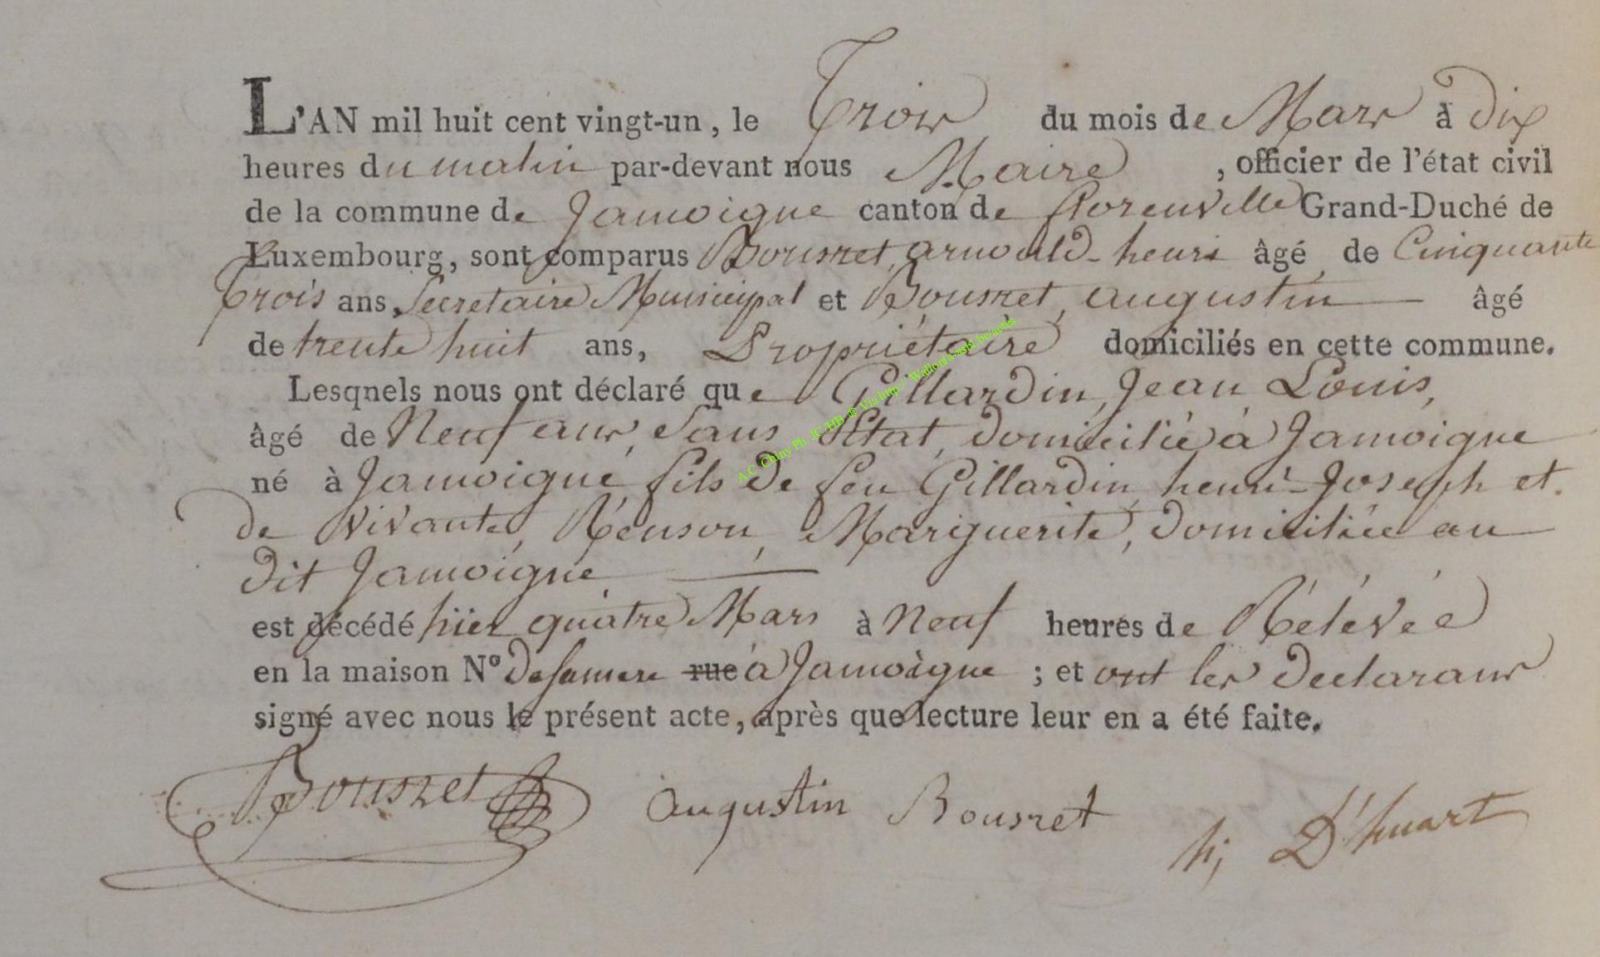 L'AN mil huit cent vingt-un, le Trois du mois de Mars à dix
heures du matin par-devant nous Maire, officier de l'état civil
de la commune de Jamoigne canton de florenville Grand-Duché de
Luxembourg, sont comparus Bousret, arnould-henri âgé de Cinquante
Trois ans, Secretaire Municipal et Bousret, augustin âgé
de trente huit ans, Propriétaire domiciliés en cette commune.
Lesqnels nous ont déclaré que Gillardin, Jean Louis,
âgé de Neuf ans, Sans Etat, domicilié à Jamoigne
né à Jamoigne, fils de feu Gillardin, henri-Joseph et.
de vivante, Renson, Marguerite, domiciliée au
dit Jamoigne
est décédé hier quatre Mars à Neuf heures de Rélévée
en la maison N° de sa mere rue à Jamoigne ; et ont les declarans
signé avec nous le présent acte, après que lecture leur en a été faite.
Bousret augustin Bousret h; D'huart